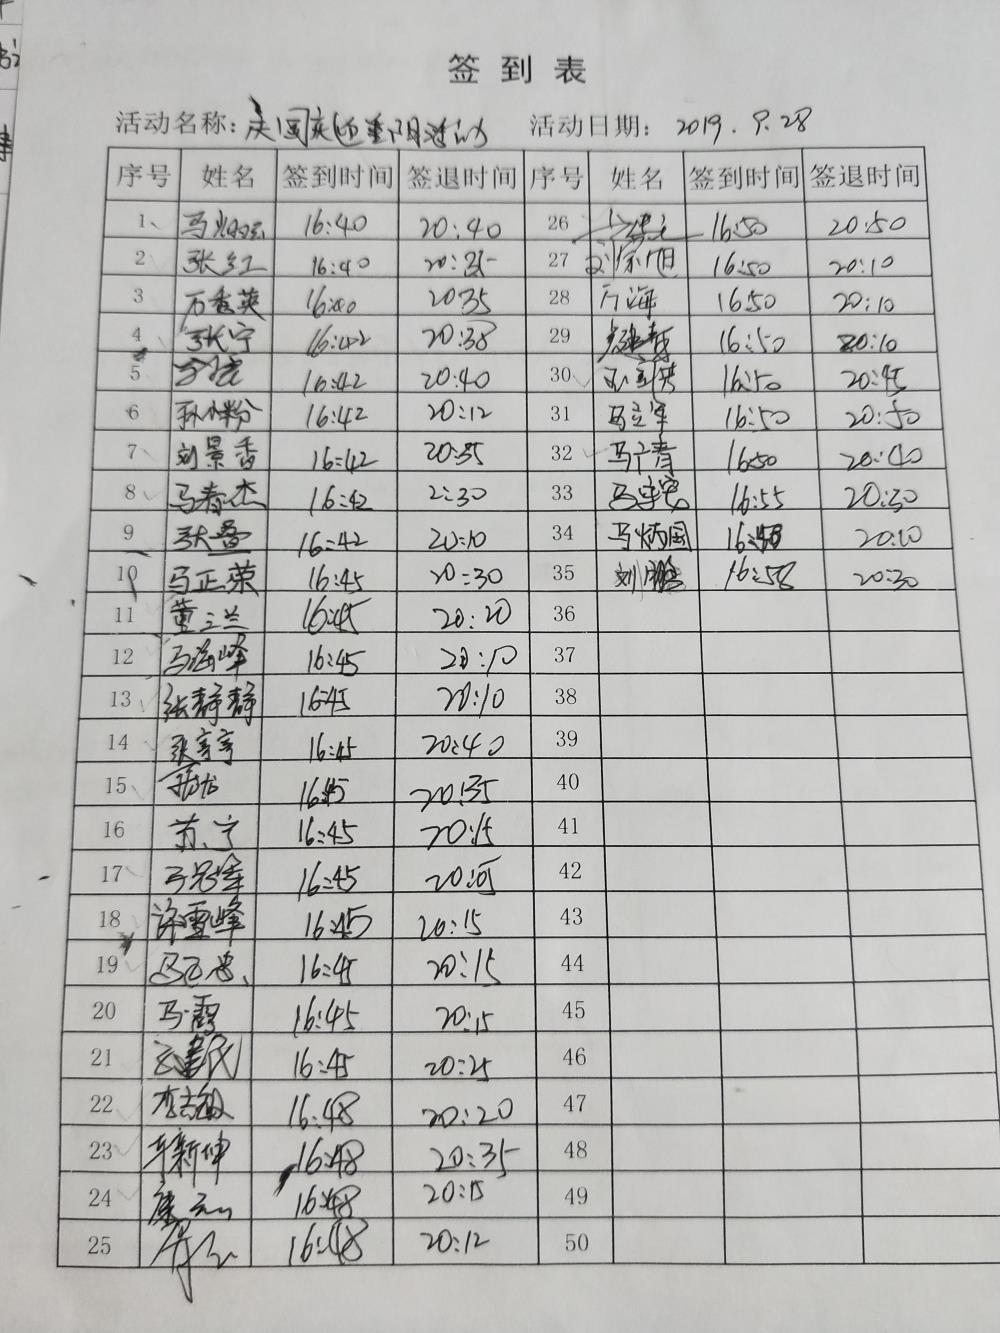 签到表
活动名称：庆国庆迎重阳活动 活动日期：2019.9.28
序号 姓名 签到时间 签退时间 序号 姓名 签到时间 签退时间
1 16:40 20:40 26 16:50 20:50
2 张红 16:40 27 16:50 20:10
3 万香英 20:35 28 16:50 20:10
4 张宁 16:42 20:38 29 16:50 20:10
5 16:42 20:40 30 16:50 20:45
6 孙小粉 16:42 20:12 31 马立军 16:50 20:50
7 刘景香 16:42 20:35 32 16:50 20:40
8 马春杰 16:42 2:30 33 16:55 20:30
9 16:42 20:10 34 马炳国 20:10
10 马正荣 16:45 20:30 35 刘鹏 16:58 20:30
11 董三兰 16:45 20:20 36
12 马海峰 16:45 20:10 37
13 张静静 16:45 20:10 38
14 16:45 20:40 39
15 16:45 20:35 40
16 苏宁 16:45 20:15 41
17 16:45 42
18 许雪峰 16:45 20:15 43
19 16:45 20:15 44
20 马霞 16:45 20:15 45
21 16:45 20:25 46
22 李志敏 16:48 20:20 47
23 车新坤 16:48 20:35 48
24 16:48 20:15 49
25 16:48 20:12 50